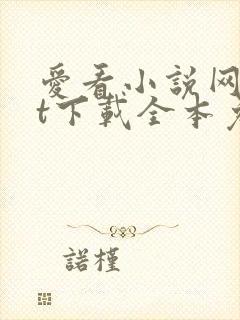 愛看小說网
t下載全本
諾槿